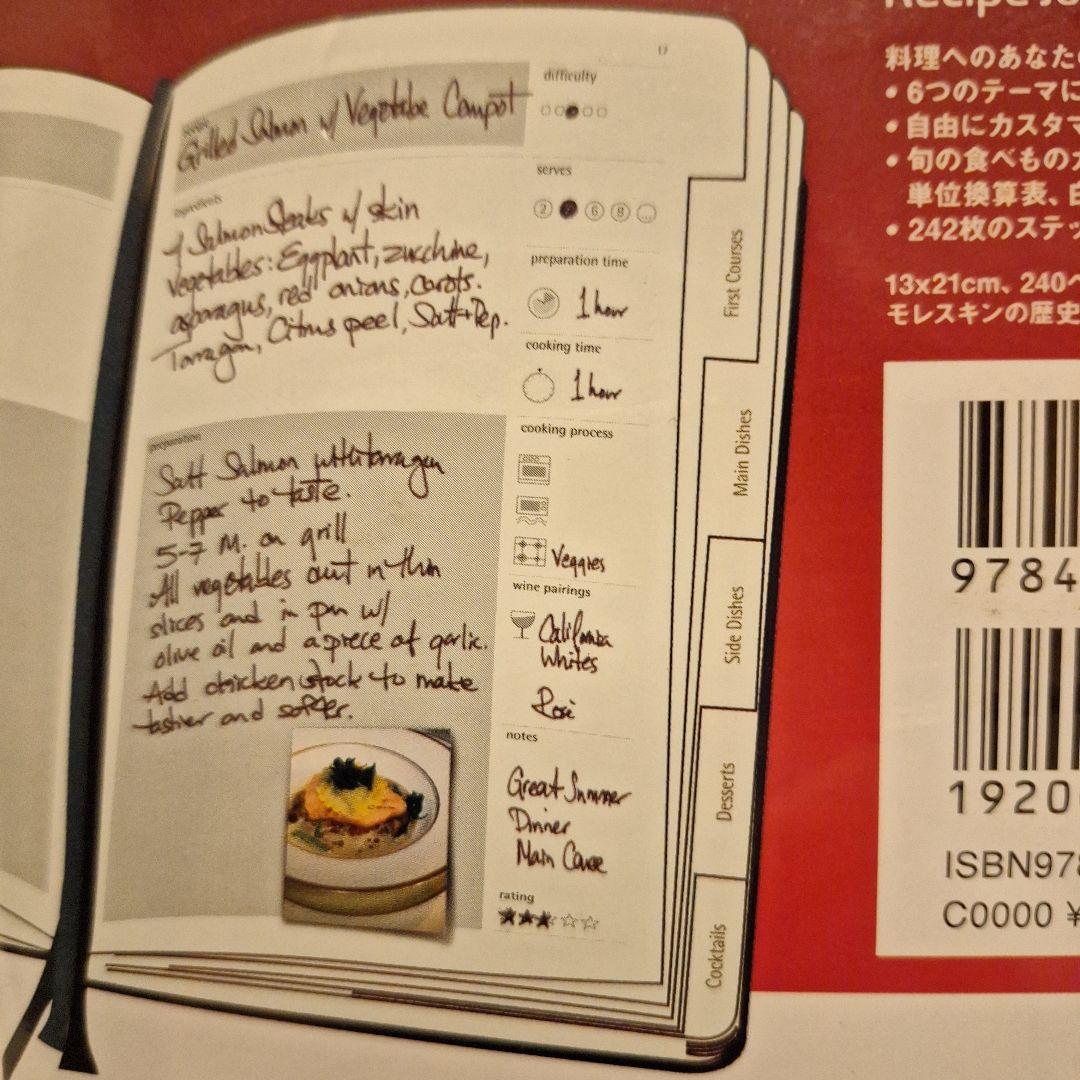 17
recipe
Grilled Salmon w/ Vegetable Compot
ingredients
4 Salmon Steaks w/ skin
Vegetables: Eggplant, zucchine,
asparagus, red onions, carots.
Tarragon, Citrus peel, Salt+Pep.
preparation
Salt Salmon with tarragon
Pepper to taste.
5-7 M. on grill
All vegetables cut in thin
slices and in pan w/
olive oil and a piece of garlic.
Add chicken stock to make
tastier and softer.
difficulty
serves
2 6 8 ...
preparation time
1 hour
cooking time
1 hour
cooking process
Veggies
wine pairings
California
Whites
Rosé
notes
Great Summer
Dinner
Main
rating
First Courses
Main Dishes
Side Dishes
Desserts
Cocktails
Recipe Jo
料理へのあなた
• 6つのテーマに
• 自由にカスタマ
• 旬の食べものカ
単位換算表、白
• 242枚のステッ
13x21cm、240ペ
モレスキンの歴史
9784
1920
ISBN978
C0000 ¥